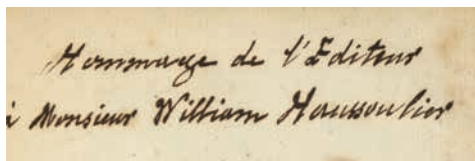 Hommage de l'Editeur
à Monsieur William Haussoulier